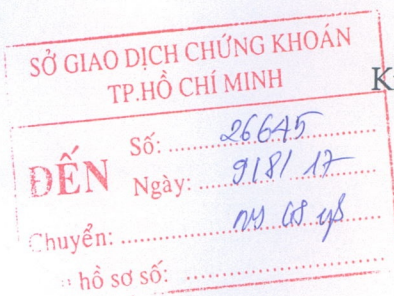 SỞ GIAO DỊCH CHỨNG KHOÁN
TP.HỒ CHÍ MINH
K
ĐẾN
Số: 26645
Ngày: 9/8/17
Chuyển:
hồ sơ số: